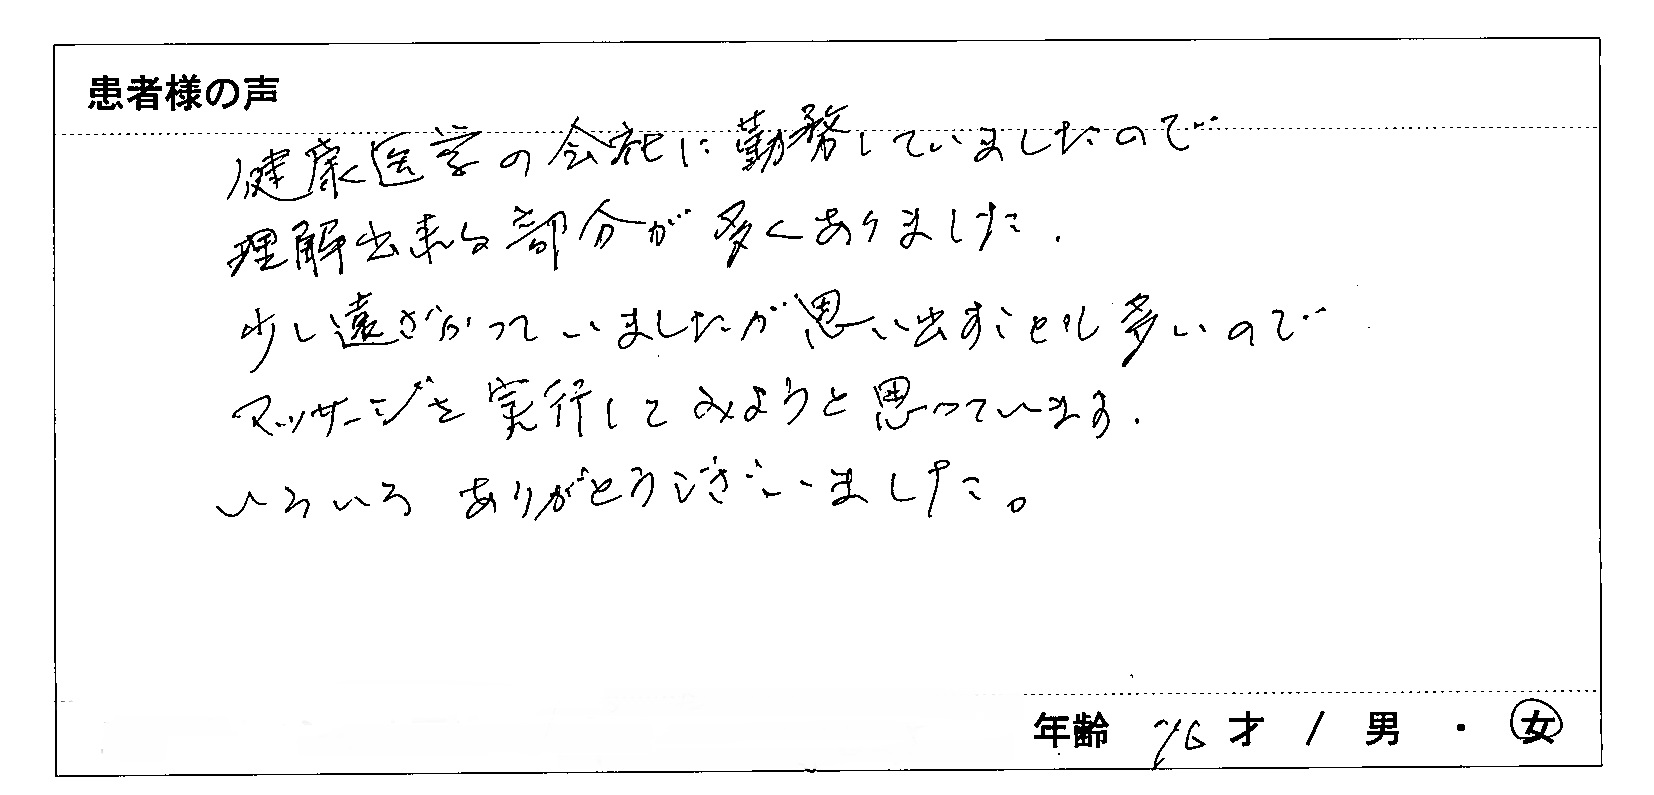 患者様の声
健康医学の会社に勤務していましたので
理解出来る部分が多くありました.
少し遠ざかっていましたが思い出すことも多いので
マッサージを実行してみようと思っています.
いろいろありがとうございました。
年齢 76才 / 男 ・ 女